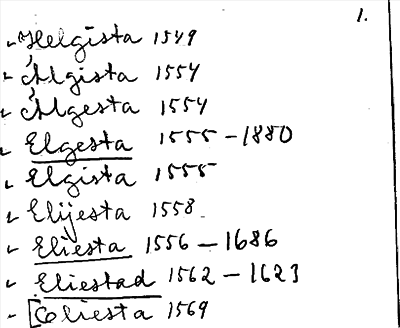 1.
Helgista 1549
Älgista 1554
Älgesta 1554
Elgesta 1555-1880
Elgista 1555
Elijesta 1558
Eliesta 1556-1686
Eliestad 1562-1623
[Coliesta 1569